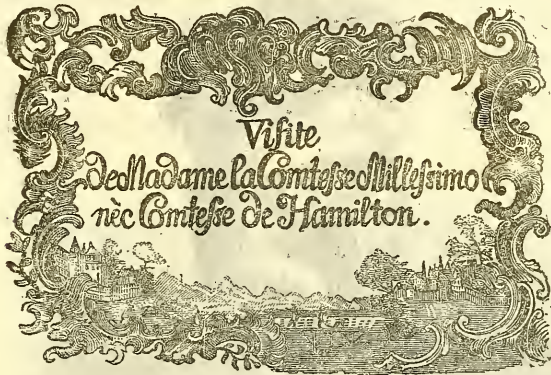 Visite
de Madame la Comtesse Millessimo
nèe Comtesse de Hamilton.